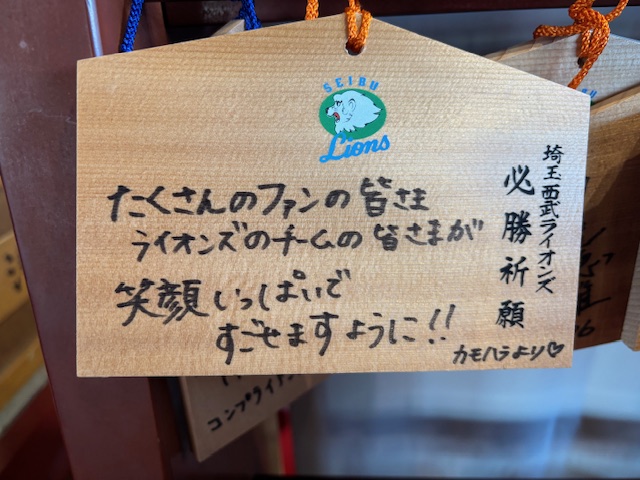 SEIBU
Lions
埼玉西武ライオンズ
必勝祈願
たくさんのファンの皆さま
ライオンズのチームの皆さまが
笑顔いっぱいで
すごせますように!!
カモハラより♡
コンプライアン